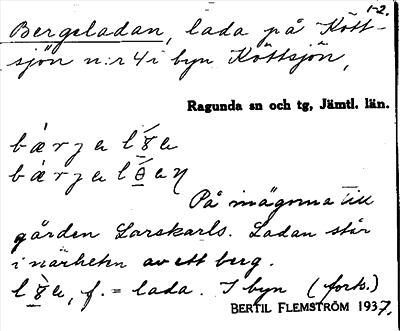 1-2.
Bergeladan, lada på Kött-
sjön n:r 4 i byn Köttsjön,
Ragunda sn och tg, Jämtl. län.
På inägorna till
gården Larskarls. Ladan står
i närheten av ett berg.
f. = lada. I byn (forts.)
BERTIL FLEMSTRÖM 1937.